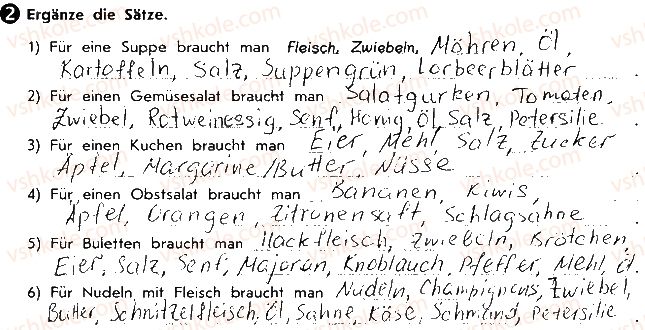 2 Ergänze die Sätze.
1) Für eine Suppe braucht man Fleisch, Zwiebeln, Möhren, Öl,
Kartoffeln, Salz, Suppengrün, Lorbeerblätter.
2) Für einen Gemüsesalat braucht man Salatgurken, Tomaten,
Zwiebel, Rotweinessig, Senf, Honig, Öl, Salz, Petersilie.
3) Für einen Kuchen braucht man Eier, Mehl, Salz, Zucker
Äpfel, Margarine/Butter, Nüsse.
4) Für einen Obstsalat braucht man Bananen, Kiwis,
Äpfel, Orangen, Zitronensaft, Schlagsahne.
5) Für Buletten braucht man Hackfleisch, Zwiebeln, Brötchen,
Eier, Salz, Senf, Majoran, Knoblauch, Pfeffer, Mehl, Öl.
6) Für Nudeln mit Fleisch braucht man Nudeln, Champignons, Zwiebel,
Butter, Schnitzelfleisch, Öl, Sahne, Käse, Schmand, Petersilie.